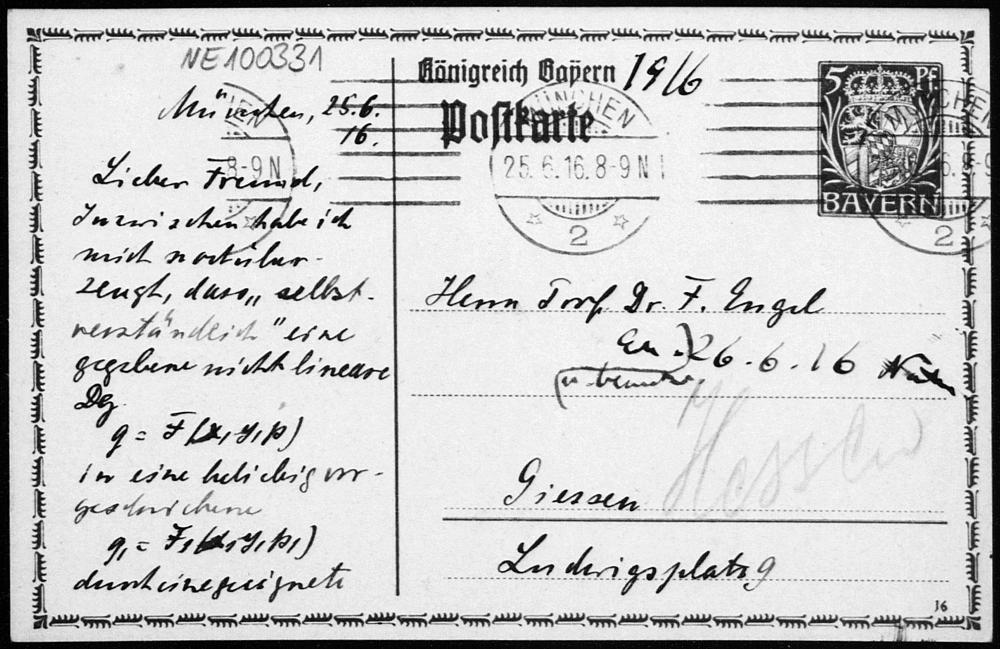 NE100331
Königreich Bayern 1916
Postkarte
MÜNCHEN
25.6.16.8-9N
2
5 Pf
BAYERN
München, 25.6.
16.
Lieber Freund,
Inzwischen habe ich
mich
zeugt, dass „selbst-
verständlich" eine
gegebene nicht lineare
Dgl
q = F(x, y, p)
in eine beliebig vor-
geschriebene
q₁ = F₁(x, y, p₁)
durch eine geeignete
Herrn Prof. Dr. F. Engel
26.6.16
Giessen
Hessen
Ludwigsplatz 9
16